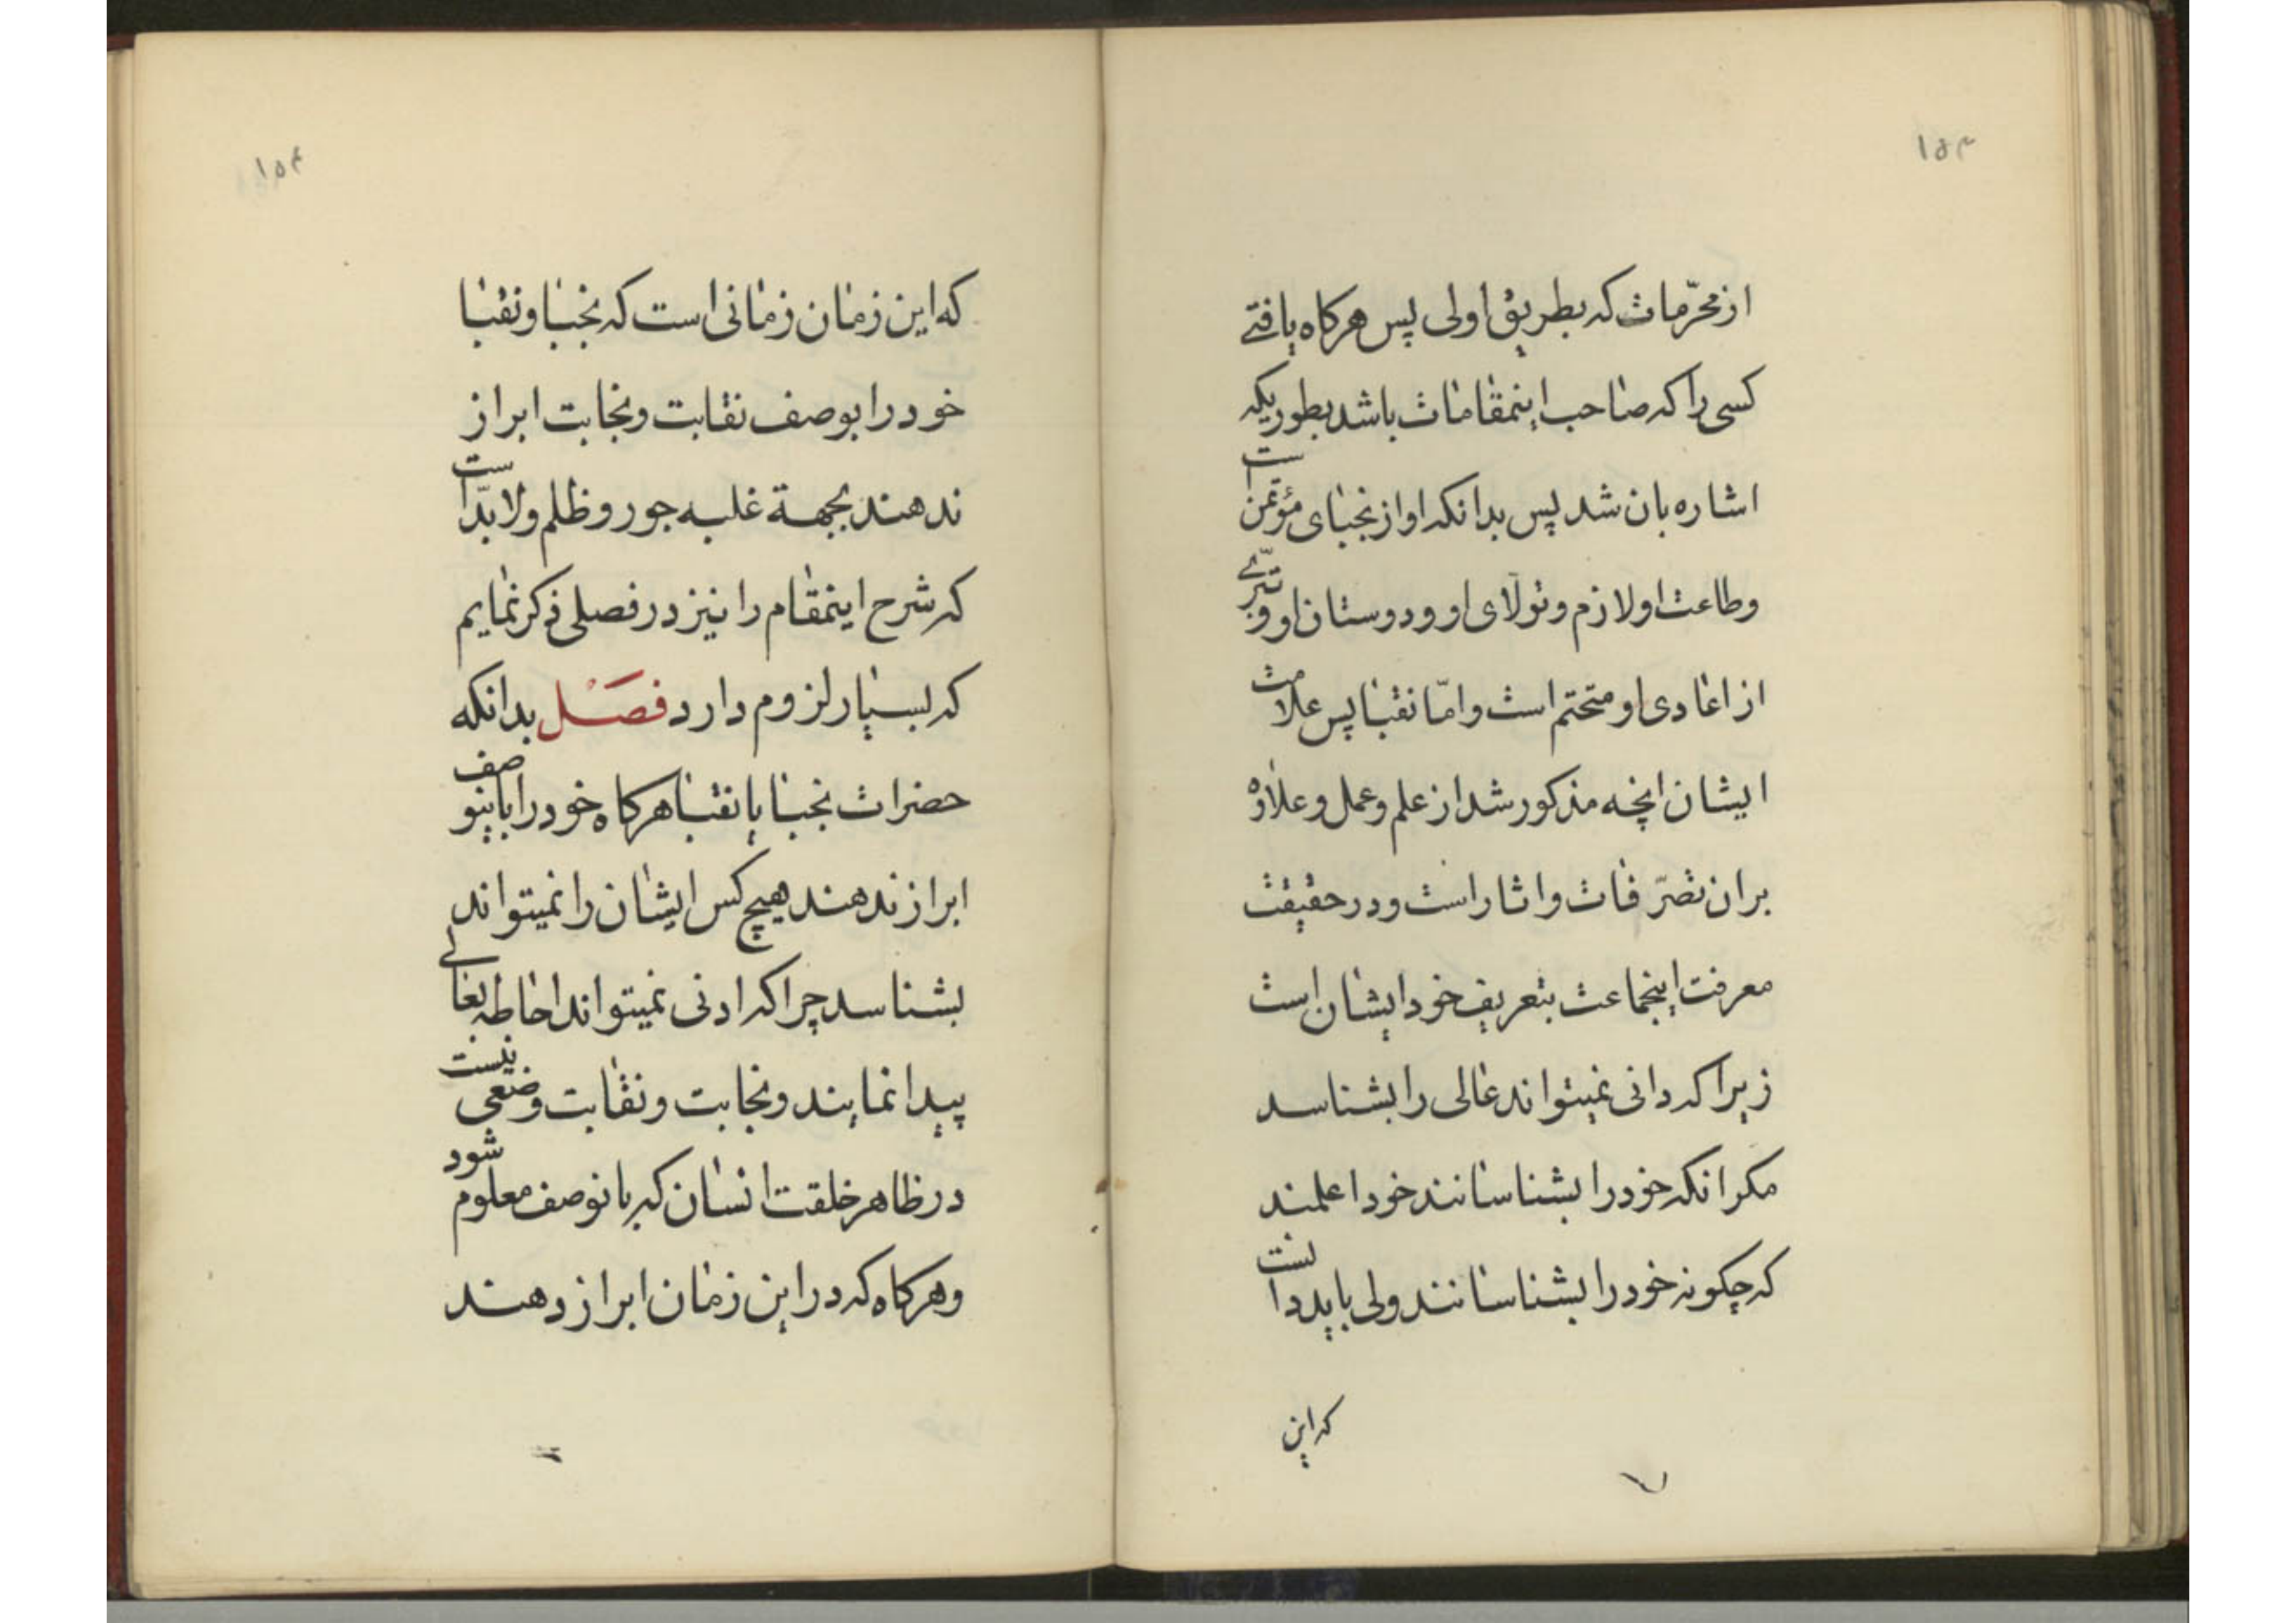 ۱۵۳
از محرّمات که بطریق اولی پس هرکاه یافتی
کسی را که صاحب اینمقامات باشد بطوریکه
اشاره بان شد پس بدانکه او از نجبای مؤتمن است
و طاعت او لازم و تولّای او و دوستان او و تبرّی
از اعادی او متحتم است و امّا نقبا پس علامت
ایشان انچه مذکور شد از علم و عمل و علاوه
بران تصرّفات و اثار است و در حقیقت
معرفت اینجماعت بتعریف خود ایشان است
زیرا که دانی نمیتواند عالی را بشناسد
مکر انکه خود را بشناسانند خود اعلمند
که چکونه خود را بشناسانند ولی باید دانست
که این
۱۵۴
که این زمان زمانی است که نجبا و نقبا
خود را بوصف نقابت و نجابت ابراز
ندهند بجهة غلبه جور و ظلم و لابدّ است
که شرح اینمقام را نیز در فصلی ذکر نمایم
که بسیار لزوم دارد فصل بدانکه
حضرات نجبا یا نقبا هرکاه خود را باینوصف
ابراز ندهند هیچ کس ایشان را نمیتواند
بشناسد چرا که ادنی نمیتواند احاطه بعالی
پیدا نمایند و نجابت و نقابت وضعی نیست
در ظاهر خلقت انسان که بانوصف معلوم شود
و هرکاه که در این زمان ابراز دهند